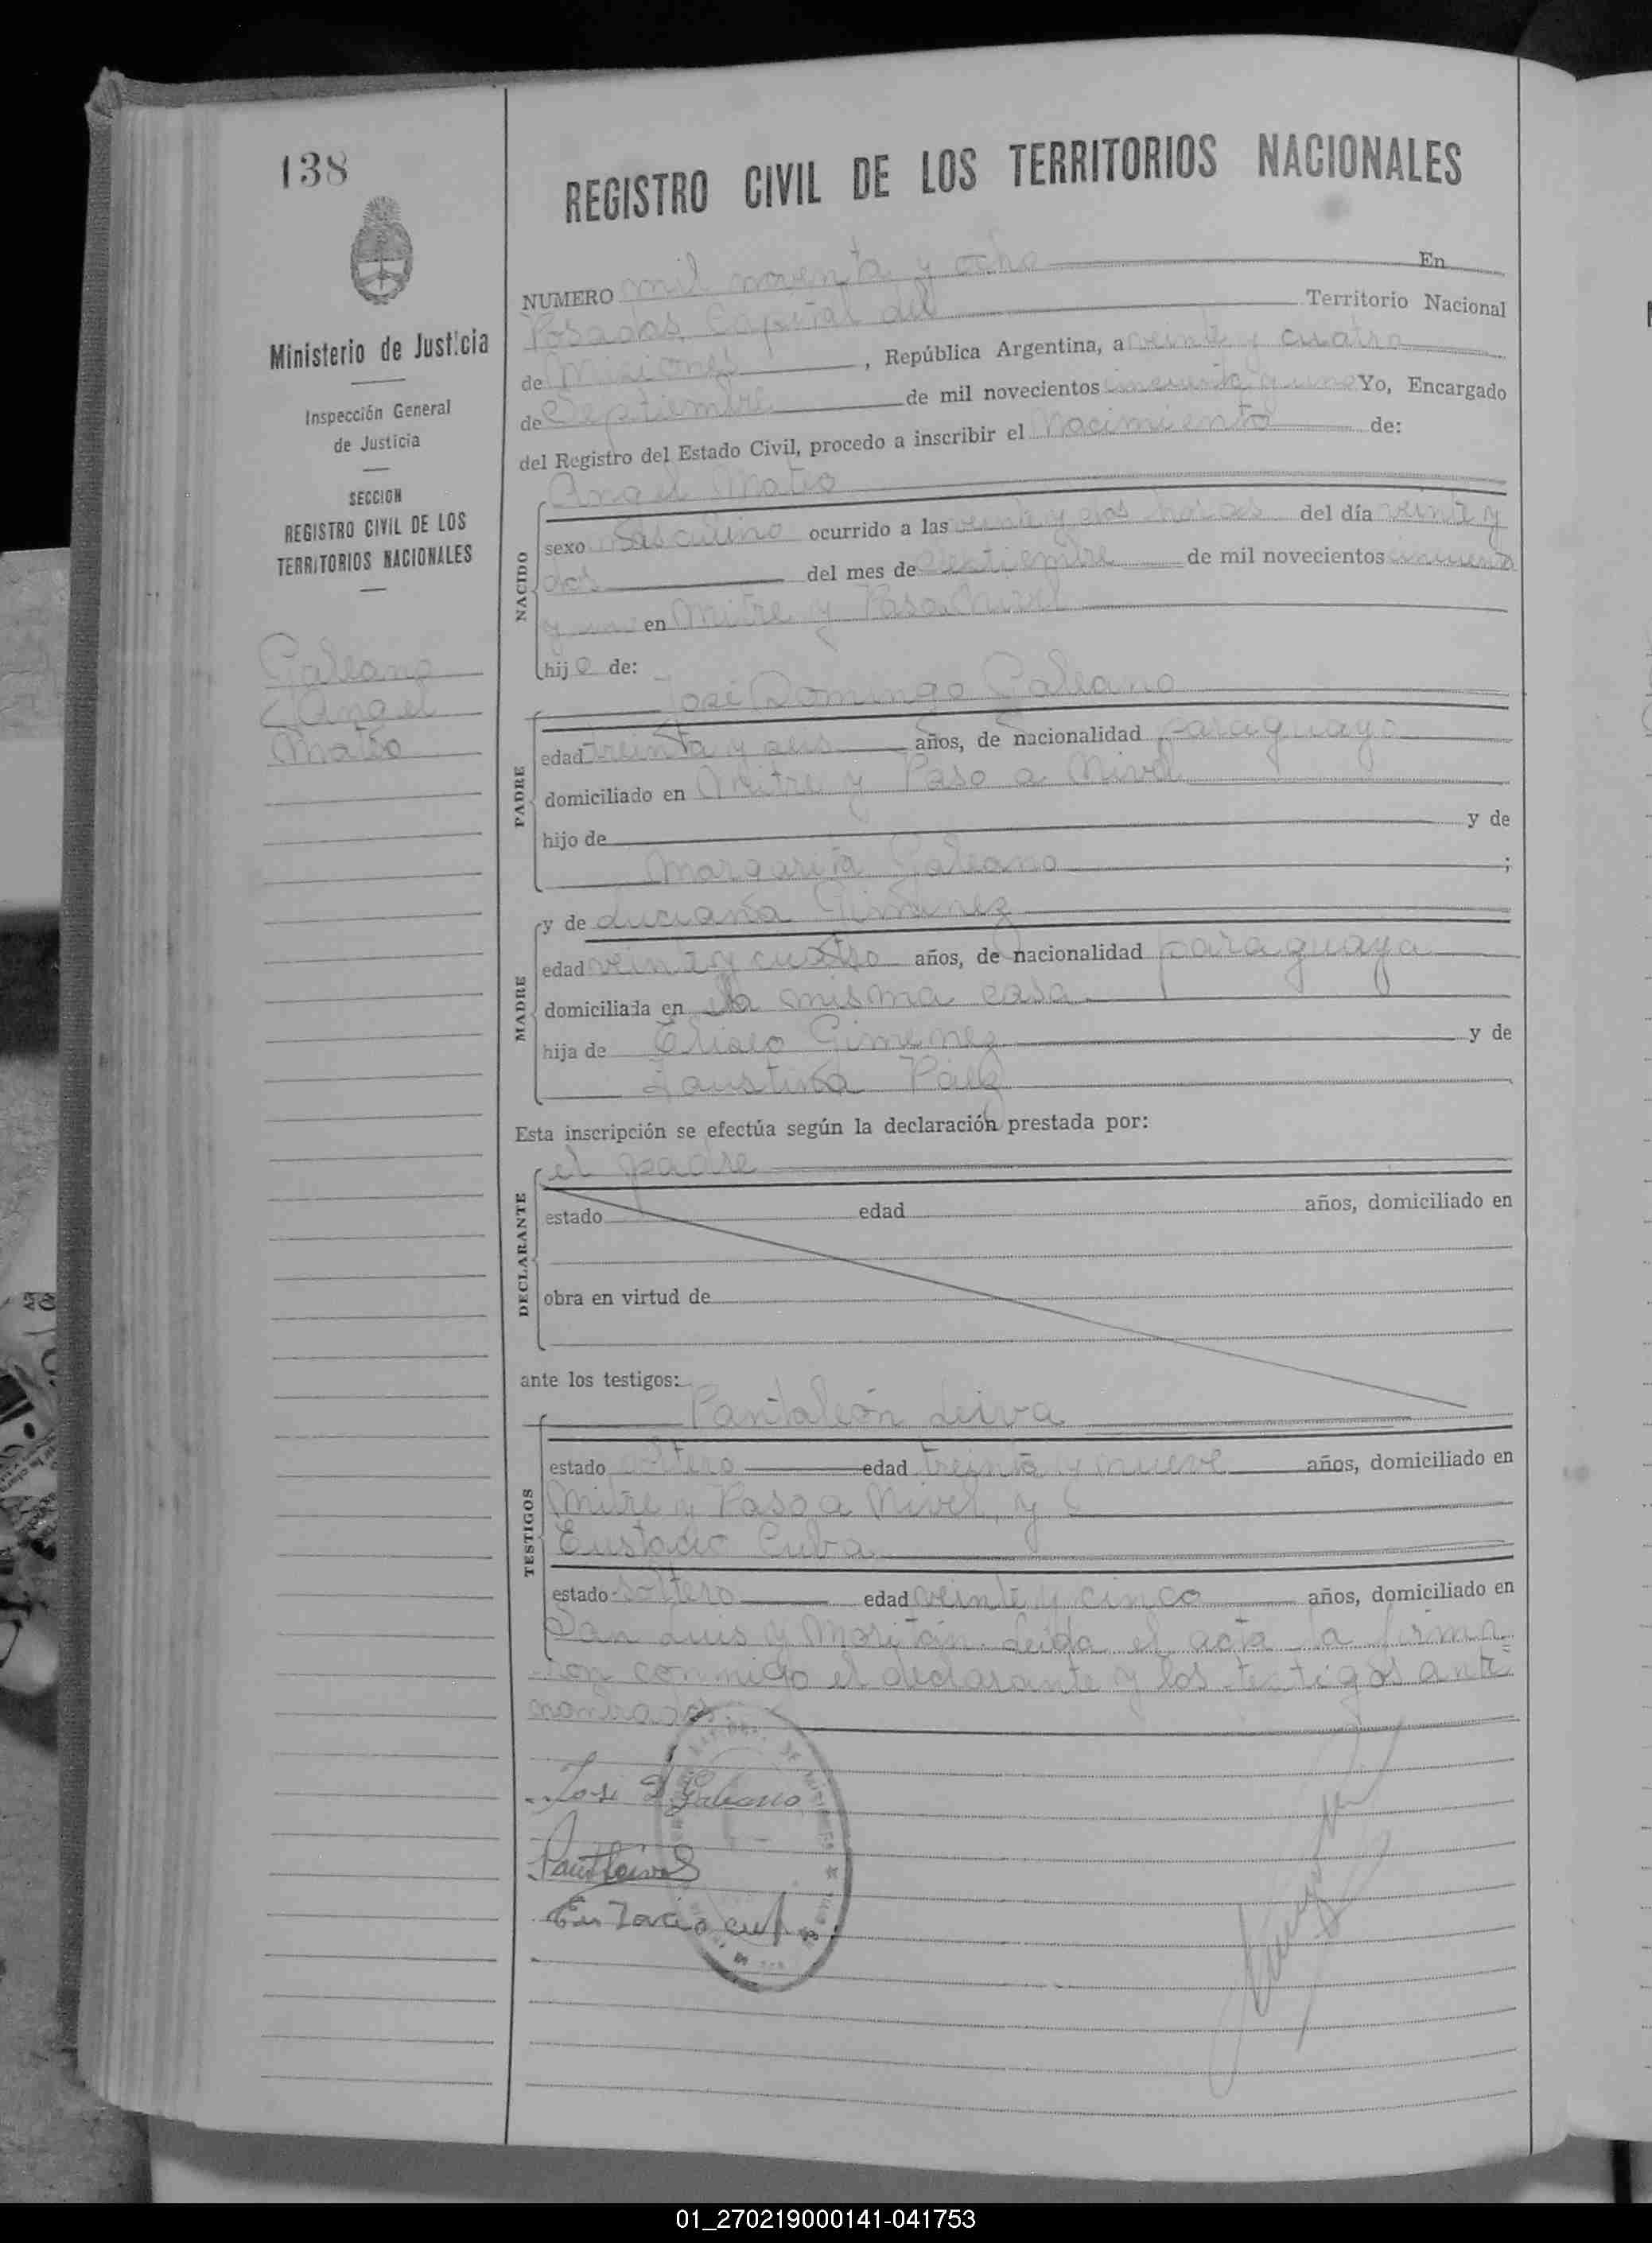 138
REGISTRO CIVIL DE LOS TERRITORIOS NACIONALES
Ministerio de Justicia
Inspección General
de Justicia
SECCION
REGISTRO CIVIL DE LOS
TERRITORIOS NACIONALES
Galeano
Angel
Matio
NUMERO mil noventa y ocho En
Posadas, Capital del Territorio Nacional
de Misiones, República Argentina, a veinte y cuatro
de Septiembre de mil novecientos cincuenta y uno Yo, Encargado
del Registro del Estado Civil, procedo a inscribir el Nacimiento de:
NACIDO
Angel Matio
sexo Masculino ocurrido a las veinte y dos horas del día veinte y
dos del mes de Septiembre de mil novecientos cincuenta
y uno en Mitre y Paso a Nivel
hijo de:
PADRE
José Domingo Galeano
edad treinta y seis años, de nacionalidad paraguayo
domiciliado en Mitre y Paso a Nivel
hijo de y de
Margarita Galeano ;
MADRE
y de Luciana Gimenez
edad veinte y cuatro años, de nacionalidad paraguaya
domiciliada en la misma casa
hija de Eliseo Gimenez y de
Faustina Paez
Esta inscripción se efectúa según la declaración prestada por:
DECLARANTE
el padre
estado edad años, domiciliado en
obra en virtud de
ante los testigos:
TESTIGOS
Pantaleón Leiva
estado soltero edad treinta y nueve años, domiciliado en
Mitre y Paso a Nivel, y
Eustacio Cuba
estado soltero edad veinte y cinco años, domiciliado en
San Luis y Moritán. Leída el acta la firma=
ron conmigo el declarante y los testigos ante
nombrados.
José D Galeano
Pant Leiva
Eustacio cuba
01_270219000141-041753